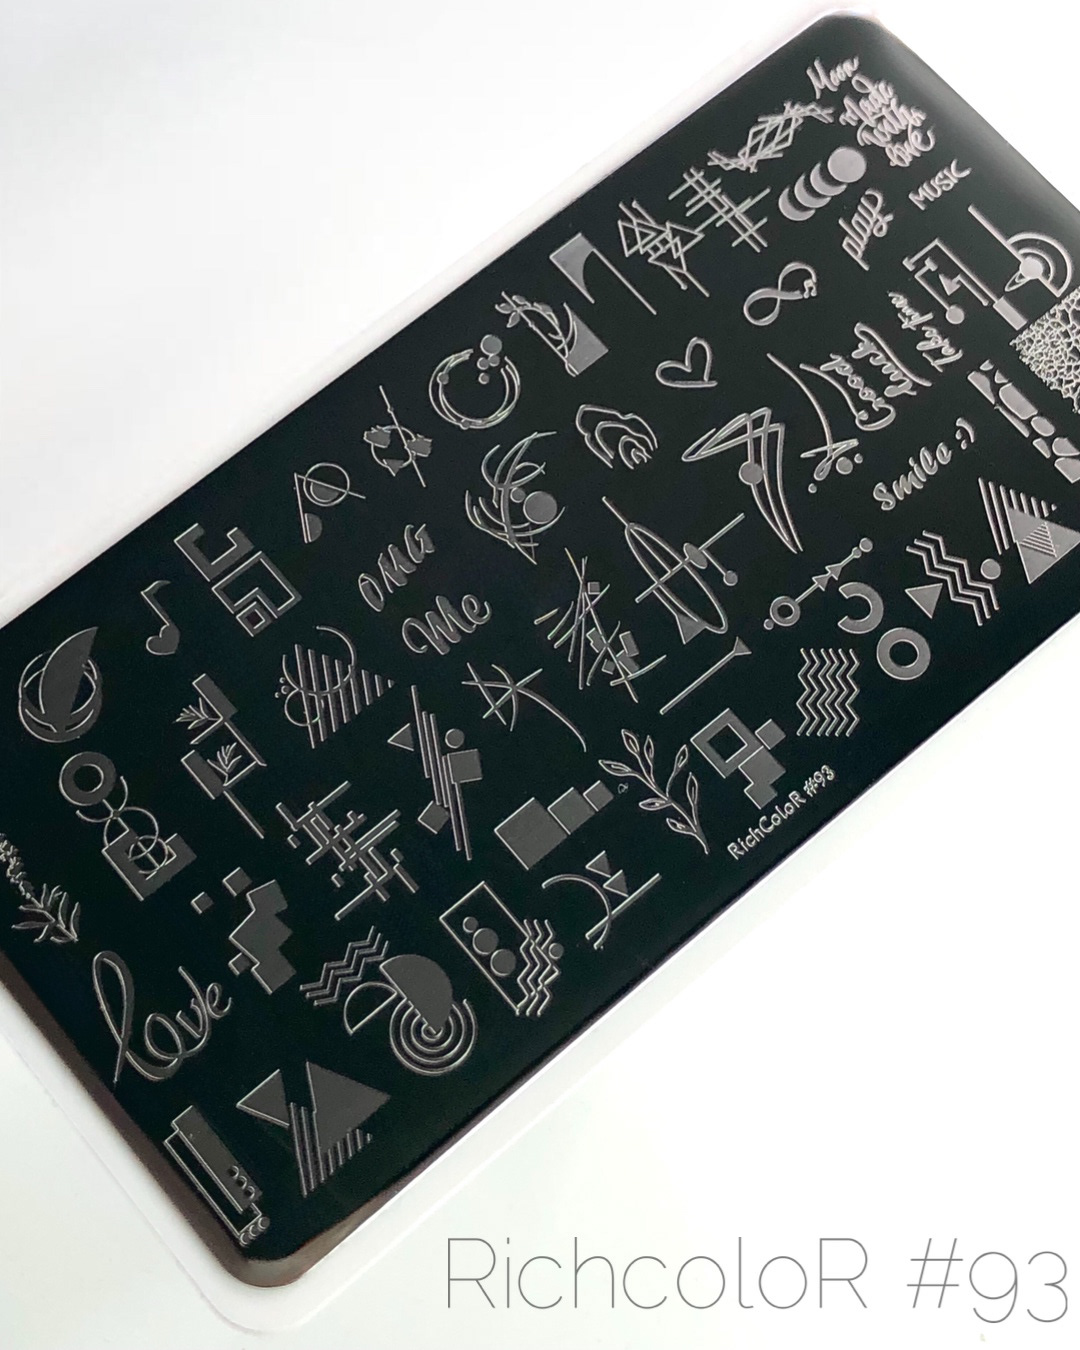 Moon
Made
with
love
MUSIC
play
Take time
Good
Smile :)
OMG
Me
RichColoR #93
love
RichcoloR #93